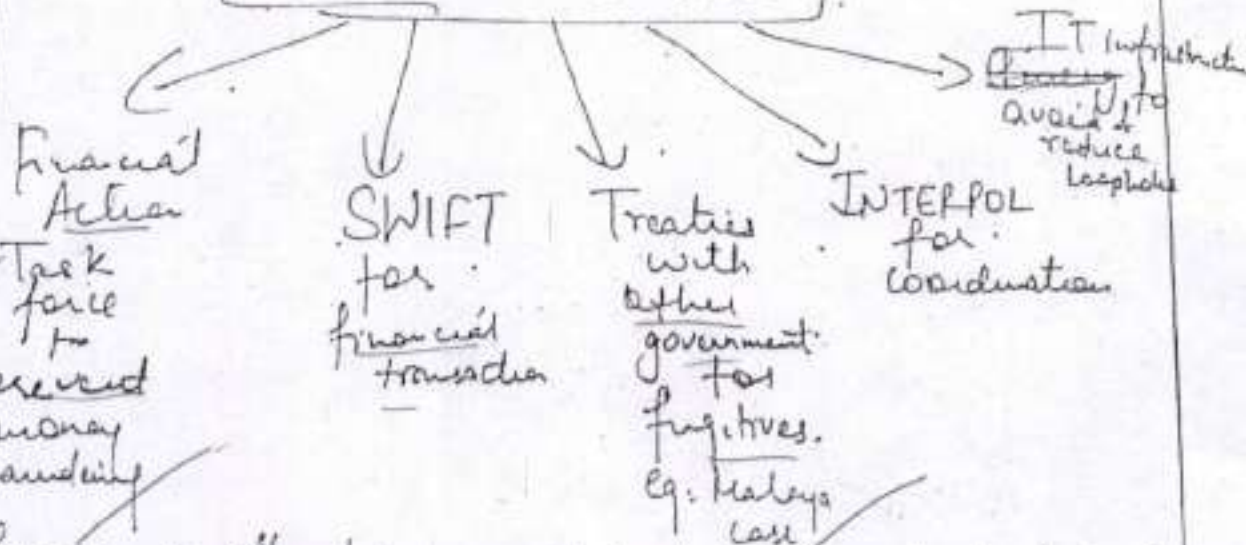 Financial
Action
Task
force
to
money
SWIFT
for
financial
transaction
Treaties
with
other
government
for
fugitives.
eg: Malaya
case
INTERPOL
for
coordination
IT infrastructure
to
avoid &
reduce
loophole